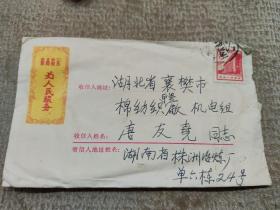 为人民服务
收信人地址:
湖北省襄樊市
棉纺织厂机电组
收信人姓名:
唐友尧同志
寄信人地址姓名:
湖南省株洲冶炼厂
单六栋24号